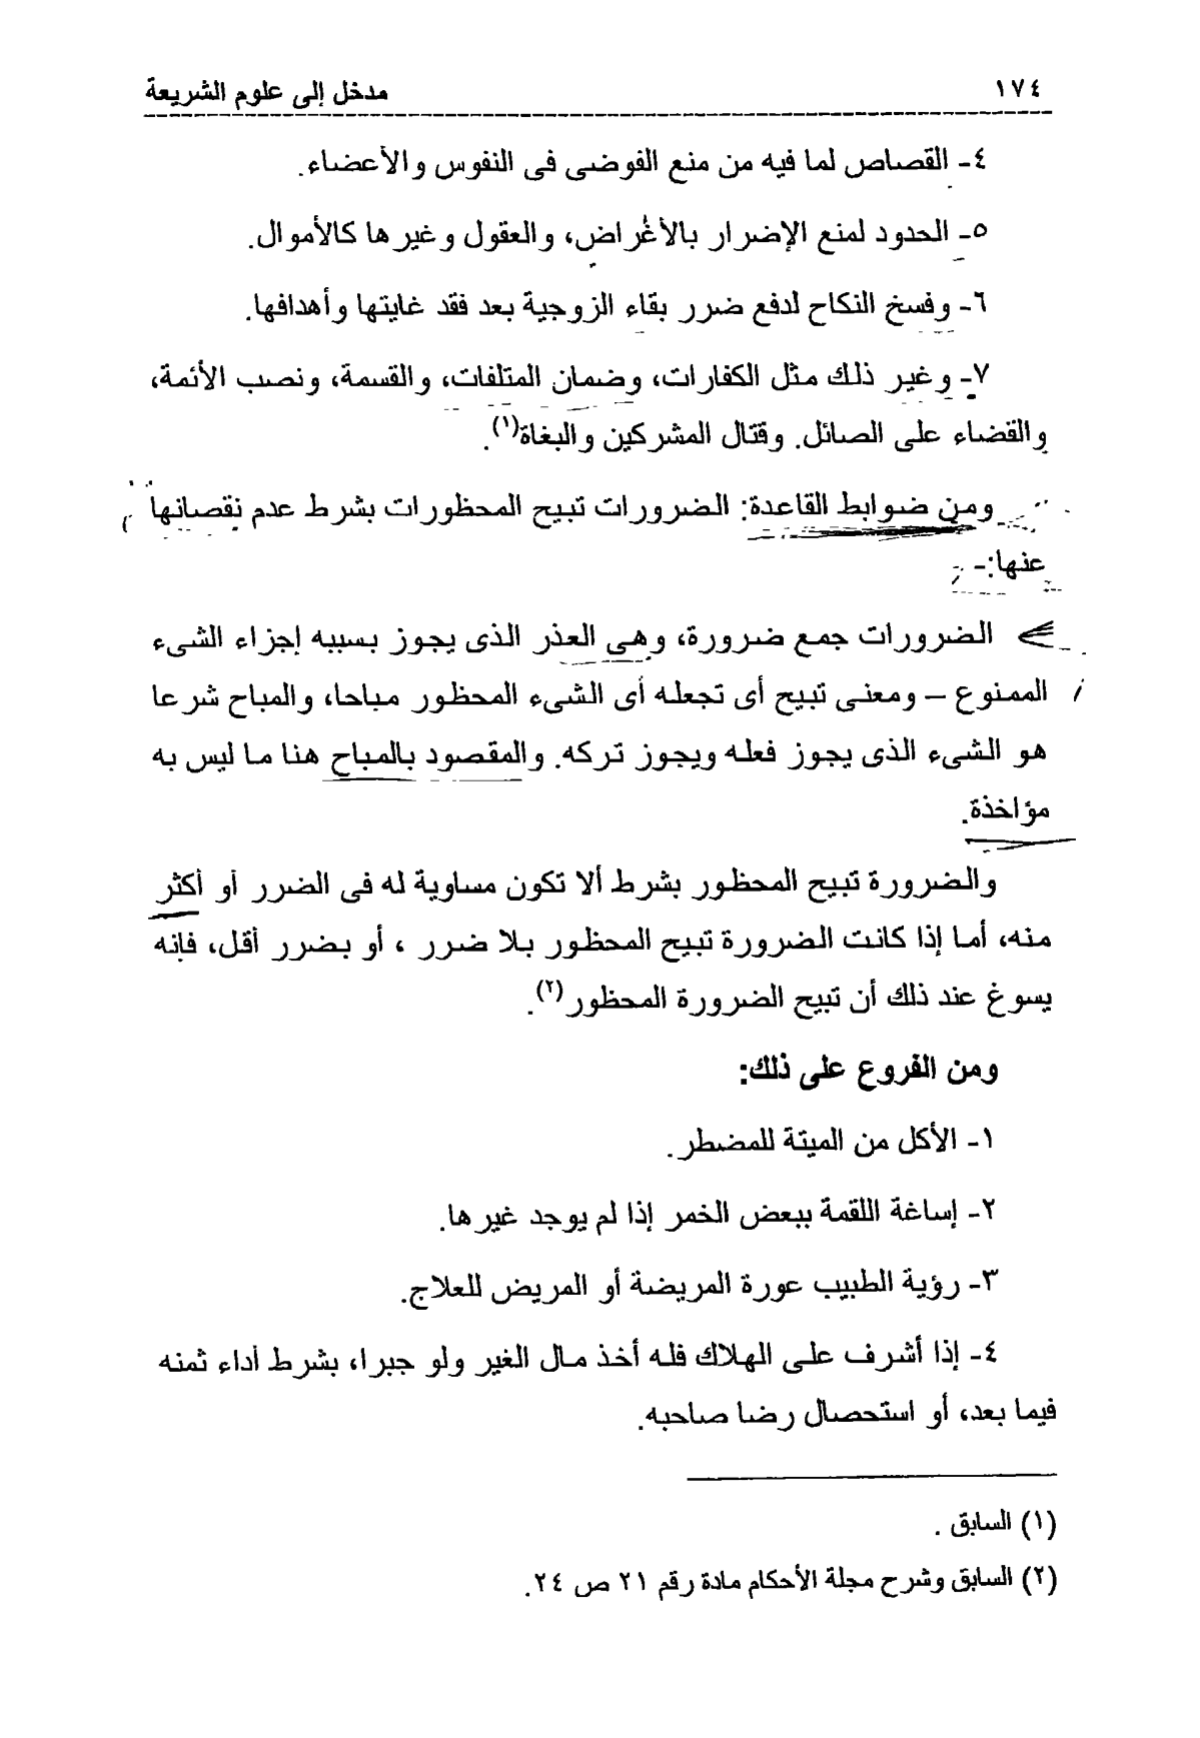 ١٧٤ مدخل إلى علوم الشريعة
٤- القصاص لما فيه من منع الفوضى فى النفوس والأعضاء.
٥- الحدود لمنع الإضرار بالأغراض، والعقول وغيرها كالأموال.
٦- وفسخ النكاح لدفع ضرر بقاء الزوجية بعد فقد غايتها وأهدافها.
٧- وغير ذلك مثل الكفارات، وضمان المتلفات، والقسمة، ونصب الأئمة،
والقضاء على الصائل. وقتال المشركين والبغاة(١).
ومن ضوابط القاعدة: الضرورات تبيح المحظورات بشرط عدم نقصانها
عنها:-
الضرورات جمع ضرورة، وهى العذر الذى يجوز بسببه إجزاء الشىء
الممنوع – ومعنى تبيح أى تجعله أى الشىء المحظور مباحا، والمباح شرعا
هو الشىء الذى يجوز فعله ويجوز تركه. والمقصود بالمباح هنا ما ليس به
مؤاخذة.
والضرورة تبيح المحظور بشرط ألا تكون مساوية له فى الضرر أو أكثر
منه، أما إذا كانت الضرورة تبيح المحظور بلا ضرر ، أو بضرر أقل، فإنه
يسوغ عند ذلك أن تبيح الضرورة المحظور(٢).
ومن الفروع على ذلك:
١- الأكل من الميتة للمضطر.
٢- إساغة اللقمة ببعض الخمر إذا لم يوجد غيرها.
٣- رؤية الطبيب عورة المريضة أو المريض للعلاج.
٤- إذا أشرف على الهلاك فله أخذ مال الغير ولو جبرا، بشرط أداء ثمنه
فيما بعد، أو استحصال رضا صاحبه.
(١) السابق .
(٢) السابق وشرح مجلة الأحكام مادة رقم ٢١ ص ٢٤.